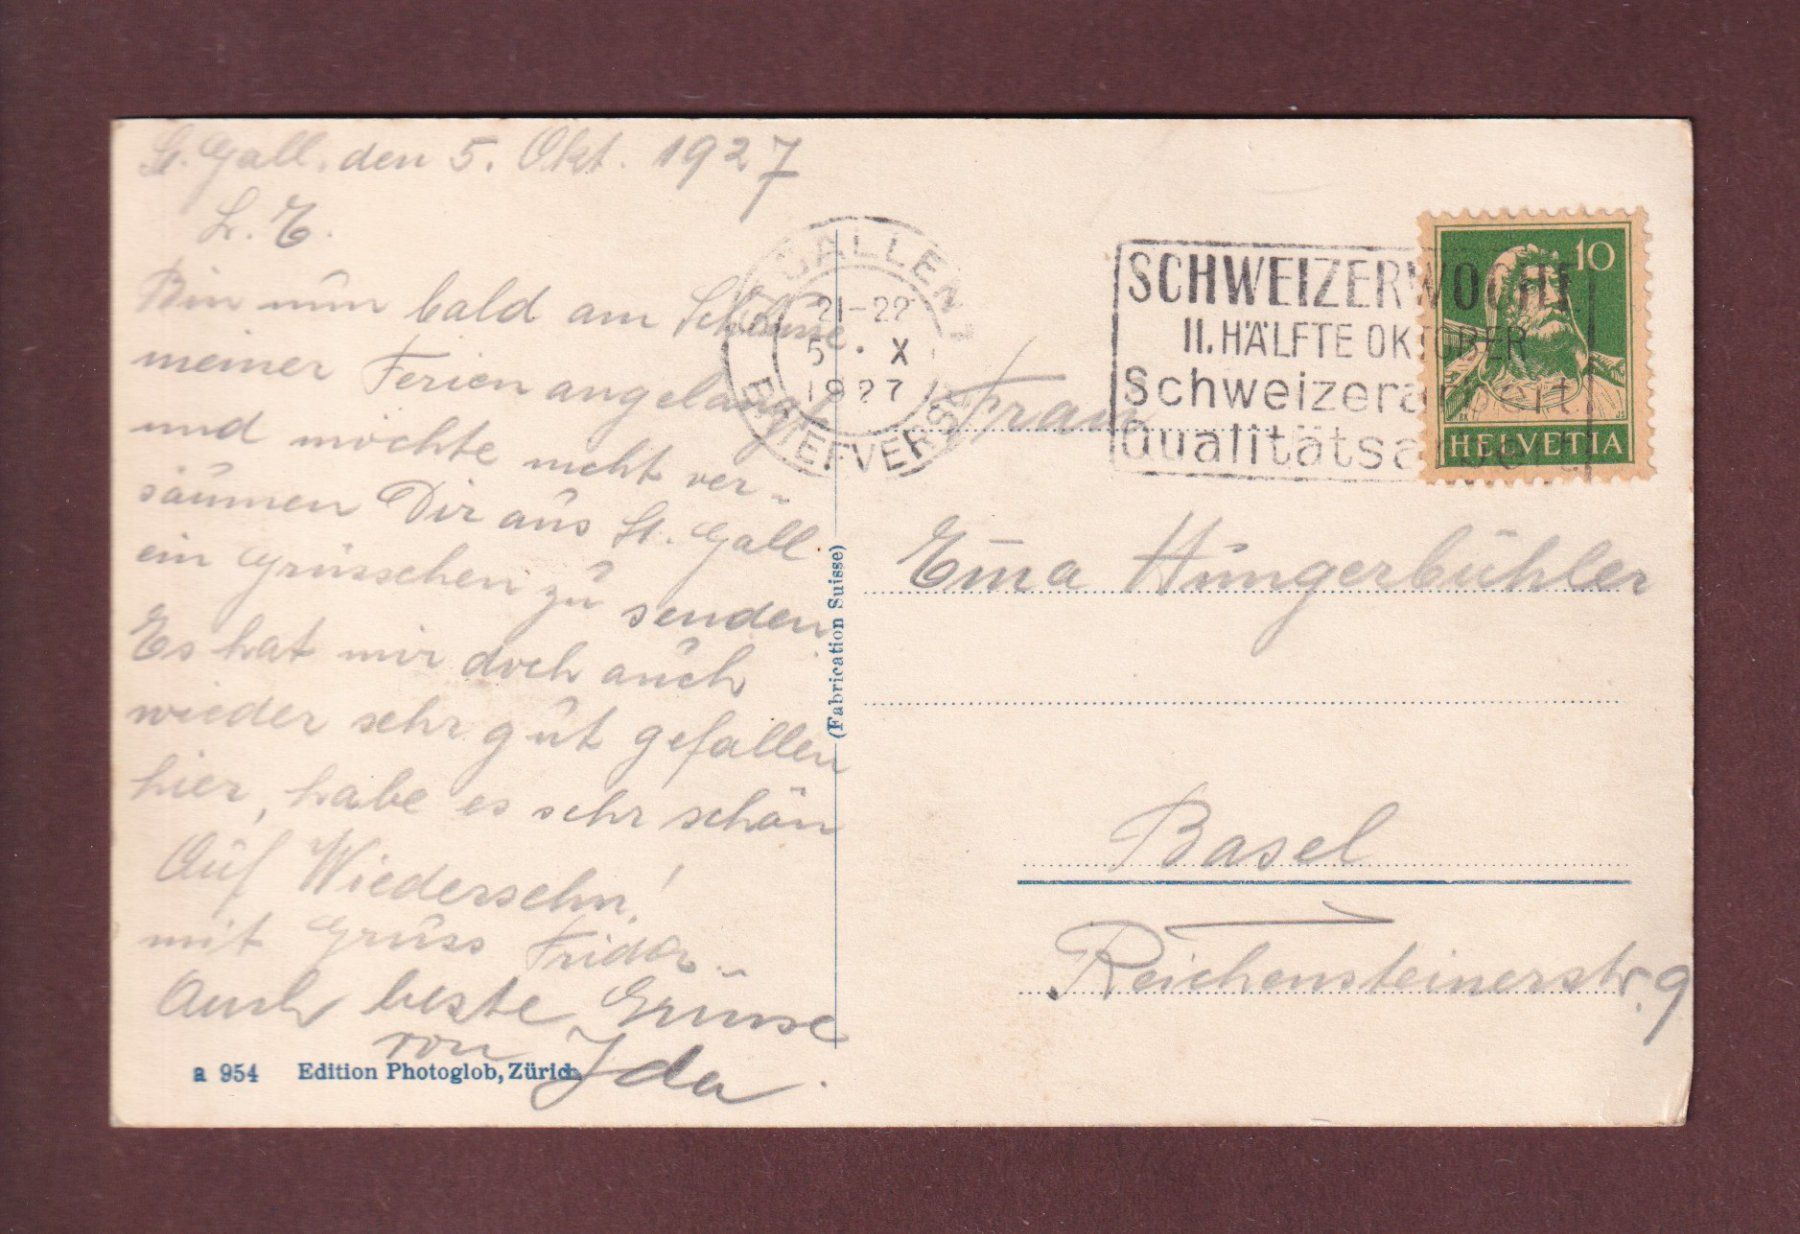 St. Gall, den 5. Okt. 1927
L. E.
Bin nun bald am Schlusse
meiner Ferien angelangt
und möchte nicht ver-
säumen Dir aus St. Gall
ein Grüsschen zu senden
Es hat mir doch auch
wieder sehr gut gefallen
hier, habe es sehr schön
Auf Wiedersehn!
mit Gruss Frida.
Auch beste Grüsse
von Ida.
a 954 Edition Photoglob, Zürich
(Fabrication Suisse)
ST. GALLEN 1
21-22
5. X
1927
BRIEFVERSD.
SCHWEIZERWOCHE
II. HÄLFTE OKTOBER
Schweizerarbeit
Qualitätsarbeit
10
HELVETIA
Frau
Em̄a Hungerbühler
Basel
Reichensteinerstr. 9